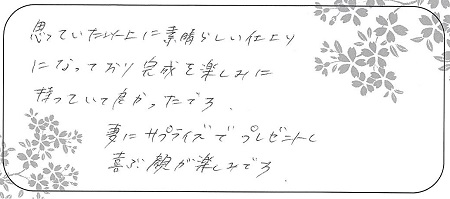 思っていた以上に素晴らしい仕上り
になっており完成を楽しみに
待っていて良かったです。
妻にサプライズでプレゼントし
喜ぶ顔が楽しみです。